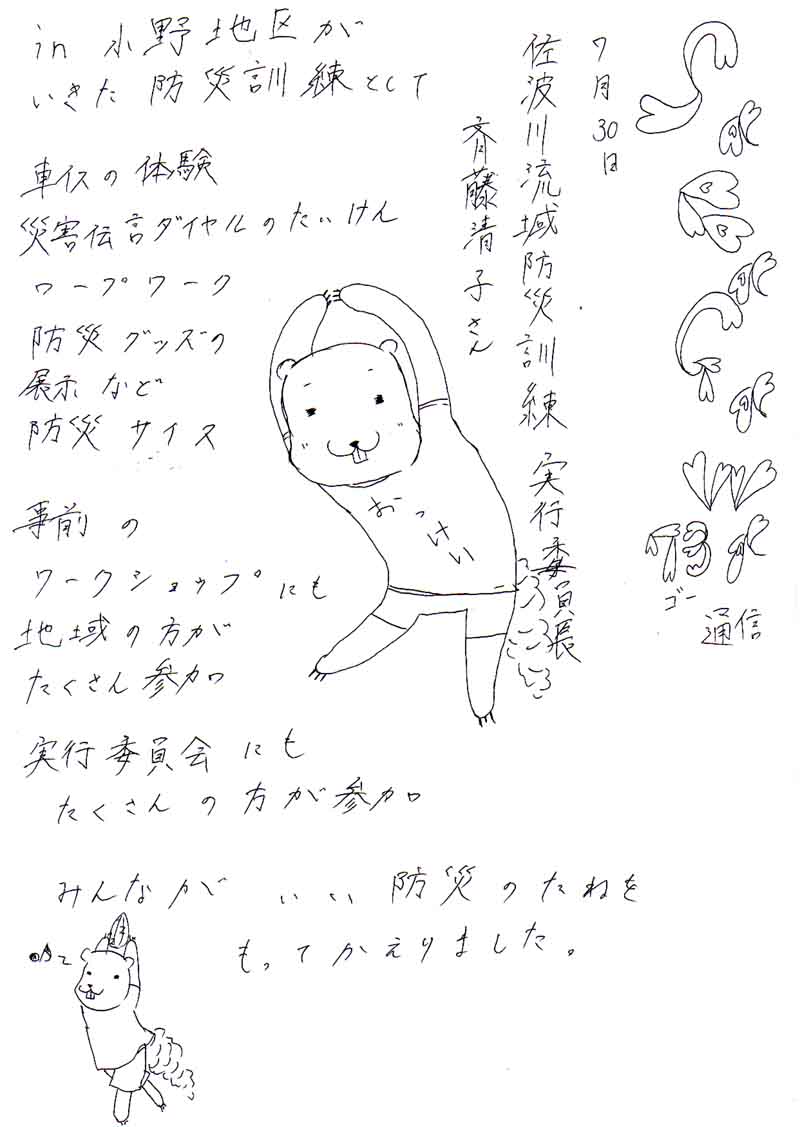 ゴー
通信
7月30日
佐波川流域防災訓練 実行委員長
斉藤清子さん
in 小野地区が
いきた 防災訓練として
車イスの体験
災害伝言ダイヤルのたいけん
ロープワーク
防災グッズの
展示など
防災サイス
おっけい
事前の
ワークショップにも
地域の方が
たくさん参加
実行委員会にも
たくさんの方が参加
みんなが いい 防災のたねを
もってかえりました。